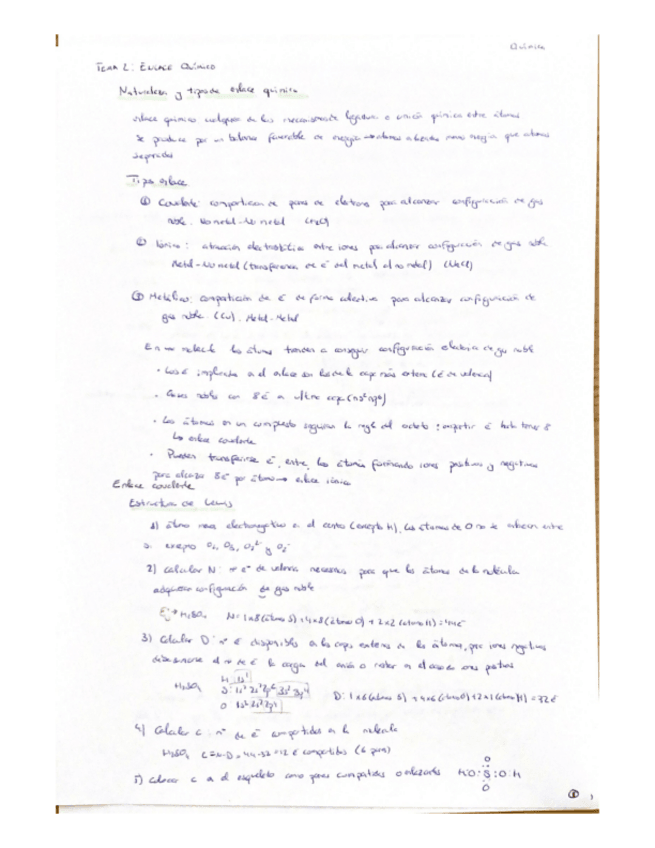 Química
TEMA 2: ENLACE QUÍMICO
Naturaleza y tipos de enlace químico
enlace químico cualquiera de los mecanismos de ligadura o unión química entre átomos
Se produce por un balance favorable de energía → átomos enlazados menos energía que átomos
separados
Tipos enlace
① Covalente: compartición de pares de electrones para alcanzar configuración de gas
noble. No metal-No metal
② Iónico: atracción electrostática entre iones para alcanzar configuración de gas noble
Metal-No metal (transferencia de e⁻ del metal al no metal) (NaCl)
③ Metálico: compartición de e⁻ de forma colectiva para alcanzar configuración de
gas noble. (Cu). Metal-Metal
En una molécula los átomos tienden a conseguir configuración electrónica de gas noble
• Los e⁻ implicados en el enlace son los de la capa más externa (e⁻ de valencia)
• Gases nobles con 8 e⁻ en última capa (ns²np⁶)
• Los átomos en un compuesto seguirían la regla del octeto: compartir e⁻ hasta tener 8
los enlace covalente
• Pueden transferirse e⁻ entre los átomos formando iones positivos y negativos
para alcanzar 8 e⁻ por átomo → enlace iónico
Enlace covalente
Estructura de Lewis
1) átomo menos electronegativo en el centro (excepto H), los átomos de O no se enlazan entre
sí excepto O₂, O₃, O₂²⁻ y O₂⁻
2) Calcular N: nº e⁻ de valencia necesarios para que los átomos de la molécula
adquieran configuración de gas noble
Ej → H₂SO₄ N = 1x8 (átomo S) + 4x8 (átomo O) + 2x2 (átomo H) = 44 e⁻
3) Calcular D: nº e⁻ disponibles en las capas externas de los átomos, para iones negativos
debe sumarse el nº de e⁻ la carga del anión o restar en el caso de iones positivos
H 1s¹
H₂SO₄ S: 1s² 2s² 2p⁶ 3s² 3p⁴ D: 1x6 (átomo S) + 4x6 (átomo O) + 2x1 (átomo H) = 32 e⁻
O 1s² 2s² 2p⁴
4) Calcular C: nº de e⁻ compartidos en la molécula
H₂SO₄ C = N-D = 44-32 = 12 e⁻ compartidos (6 pares)
5) Colocar C en el esqueleto como pares compartidos o enlazados
O
HO:S:OH
O
①